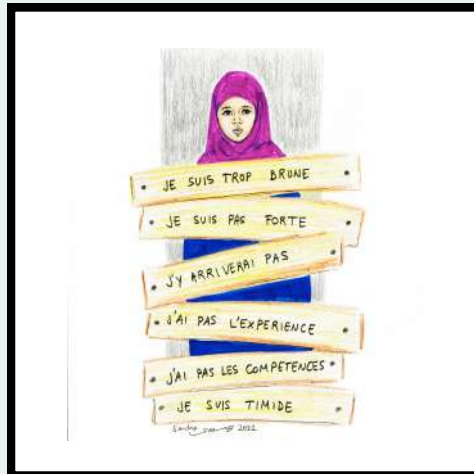 JE SUIS TROP BRUNE
JE SUIS PAS FORTE
J'Y ARRIVERAI PAS
J'AI PAS L'EXPERIENCE
J'AI PAS LES COMPETENCES
JE SUIS TIMIDE
2022